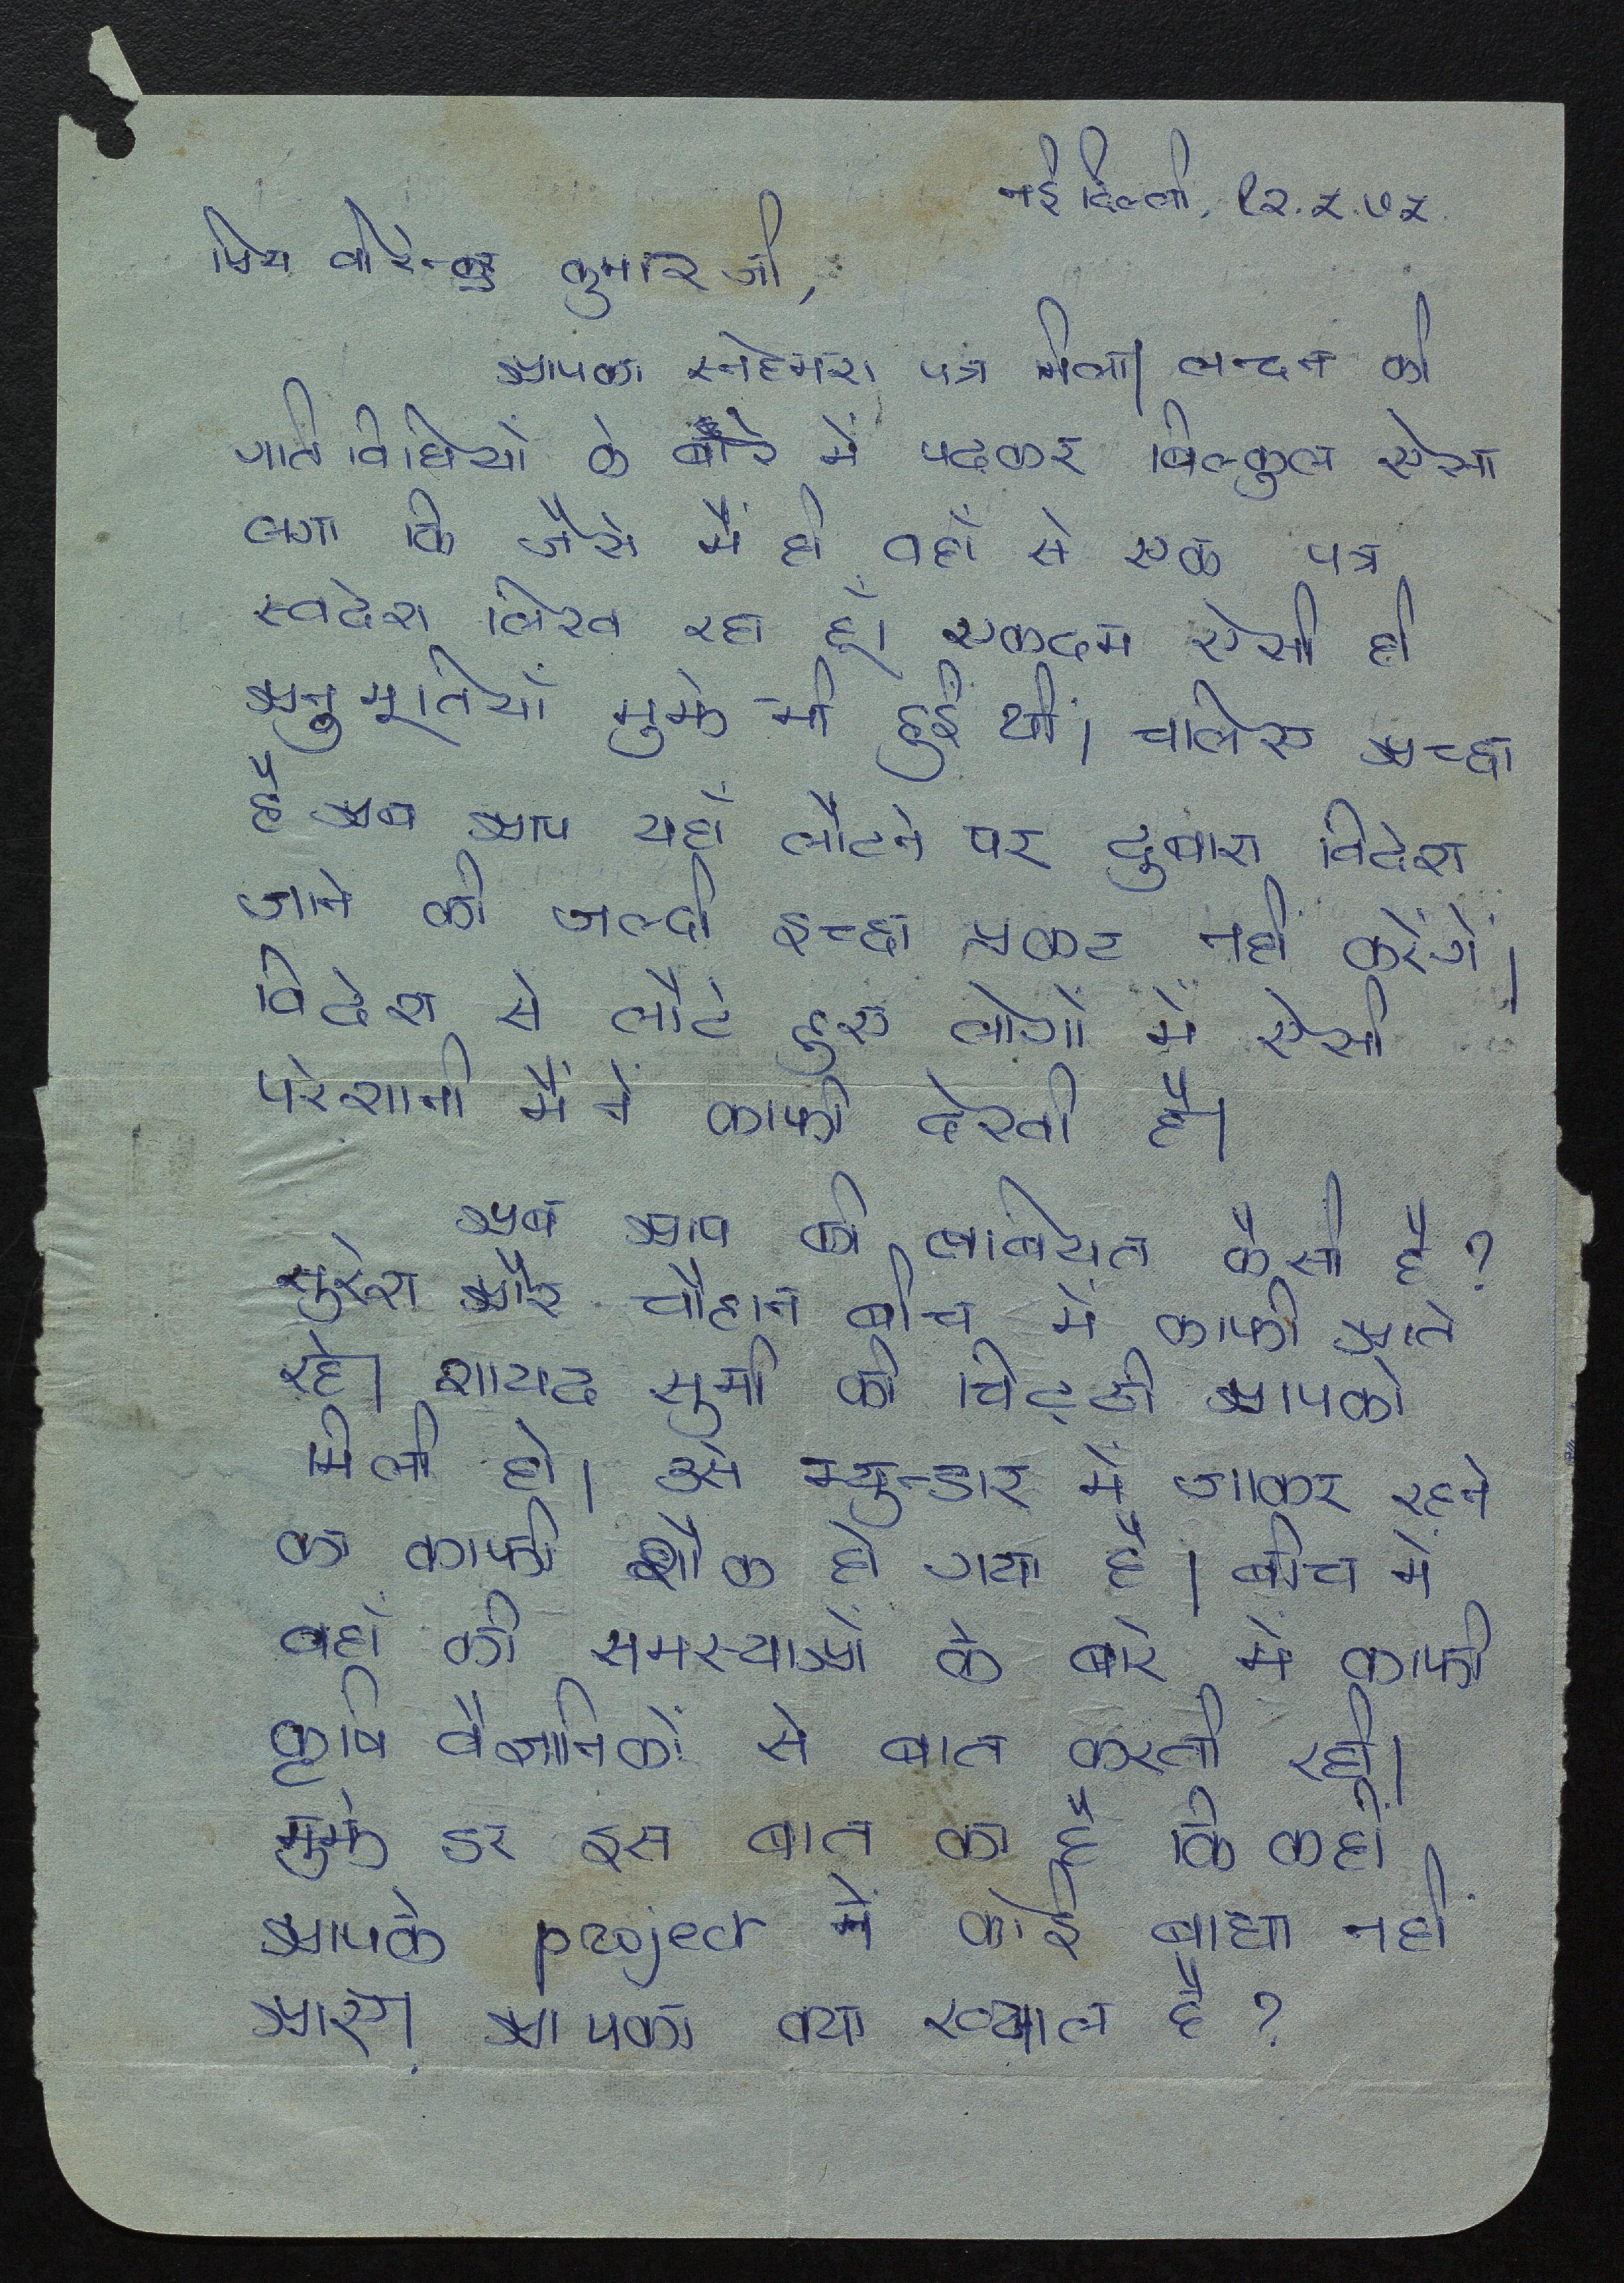 नई दिल्ली, १२.५.७५.
प्रिय वीरेन्द्र कुमार जी,
आपका स्नेहभरा पत्र मिला। लन्दन की
गतिविधियों के बारे में पढ़कर बिल्कुल ऐसा
लगा कि जैसे मैं ही वहाँ से एक पत्र
स्वदेश लिख रहा हूँ। एकदम ऐसी ही
अनुभूतियाँ मुझे भी हुई थीं। चलिए अच्छा
है अब आप यहाँ लौटने पर दुबारा विदेश
जाने की जल्दी इच्छा प्रकट नहीं करेंगें।
विदेश से लौटे हुए लोगों में ऐसी
परेशानी मैं ने काफी देखी है।
अब आप की तबियत कैसी है?
सुरेश और चौहान बीच में काफी आते
रहे। शायद सुमी की चिट्ठी आपको
मिली हो। उसे म्युन्डार में जाकर रहने
का काफी शौक हो गया है। बीच में
वहाँ की समस्याओं के बारे में काफी
कृषि वैज्ञानिकों से बात करती रही।
मुझे डर इस बात का है कि कहीं
आपके project में कोई बाधा नहीं
आए। आपका क्या ख्याल है?